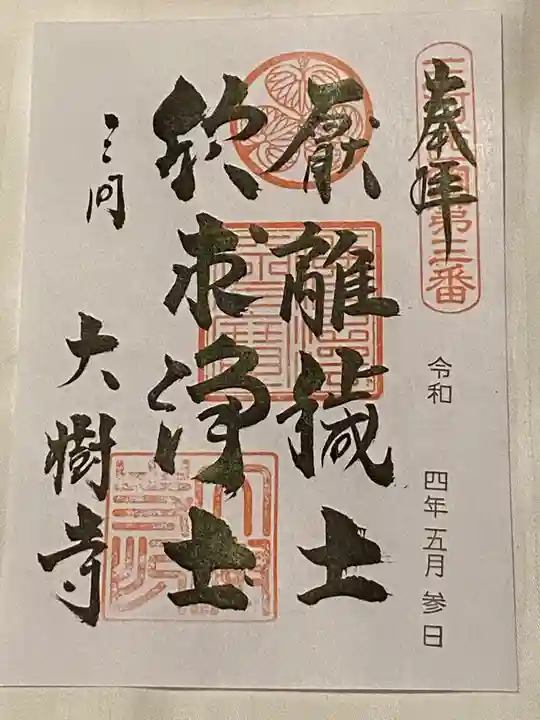 奉拝
令和 四年五月参日
厭離穢土
欣求浄土
三河
大樹寺